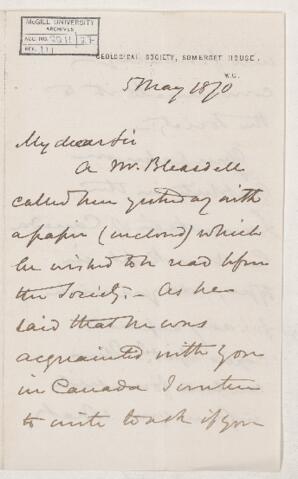 McGILL UNIVERSITY
ARCHIVES
ACC. NO.
REF.
GEOLOGICAL SOCIETY, SOMERSET HOUSE.
W.C.
5 May 1870
My dear Sir
A Mr. Bleasdell
called here yesterday with
a paper (inclosed) which
he wished to be read before
the Society. - As he
said that he was
acquainted with you
in Canada I
to write to ask if you